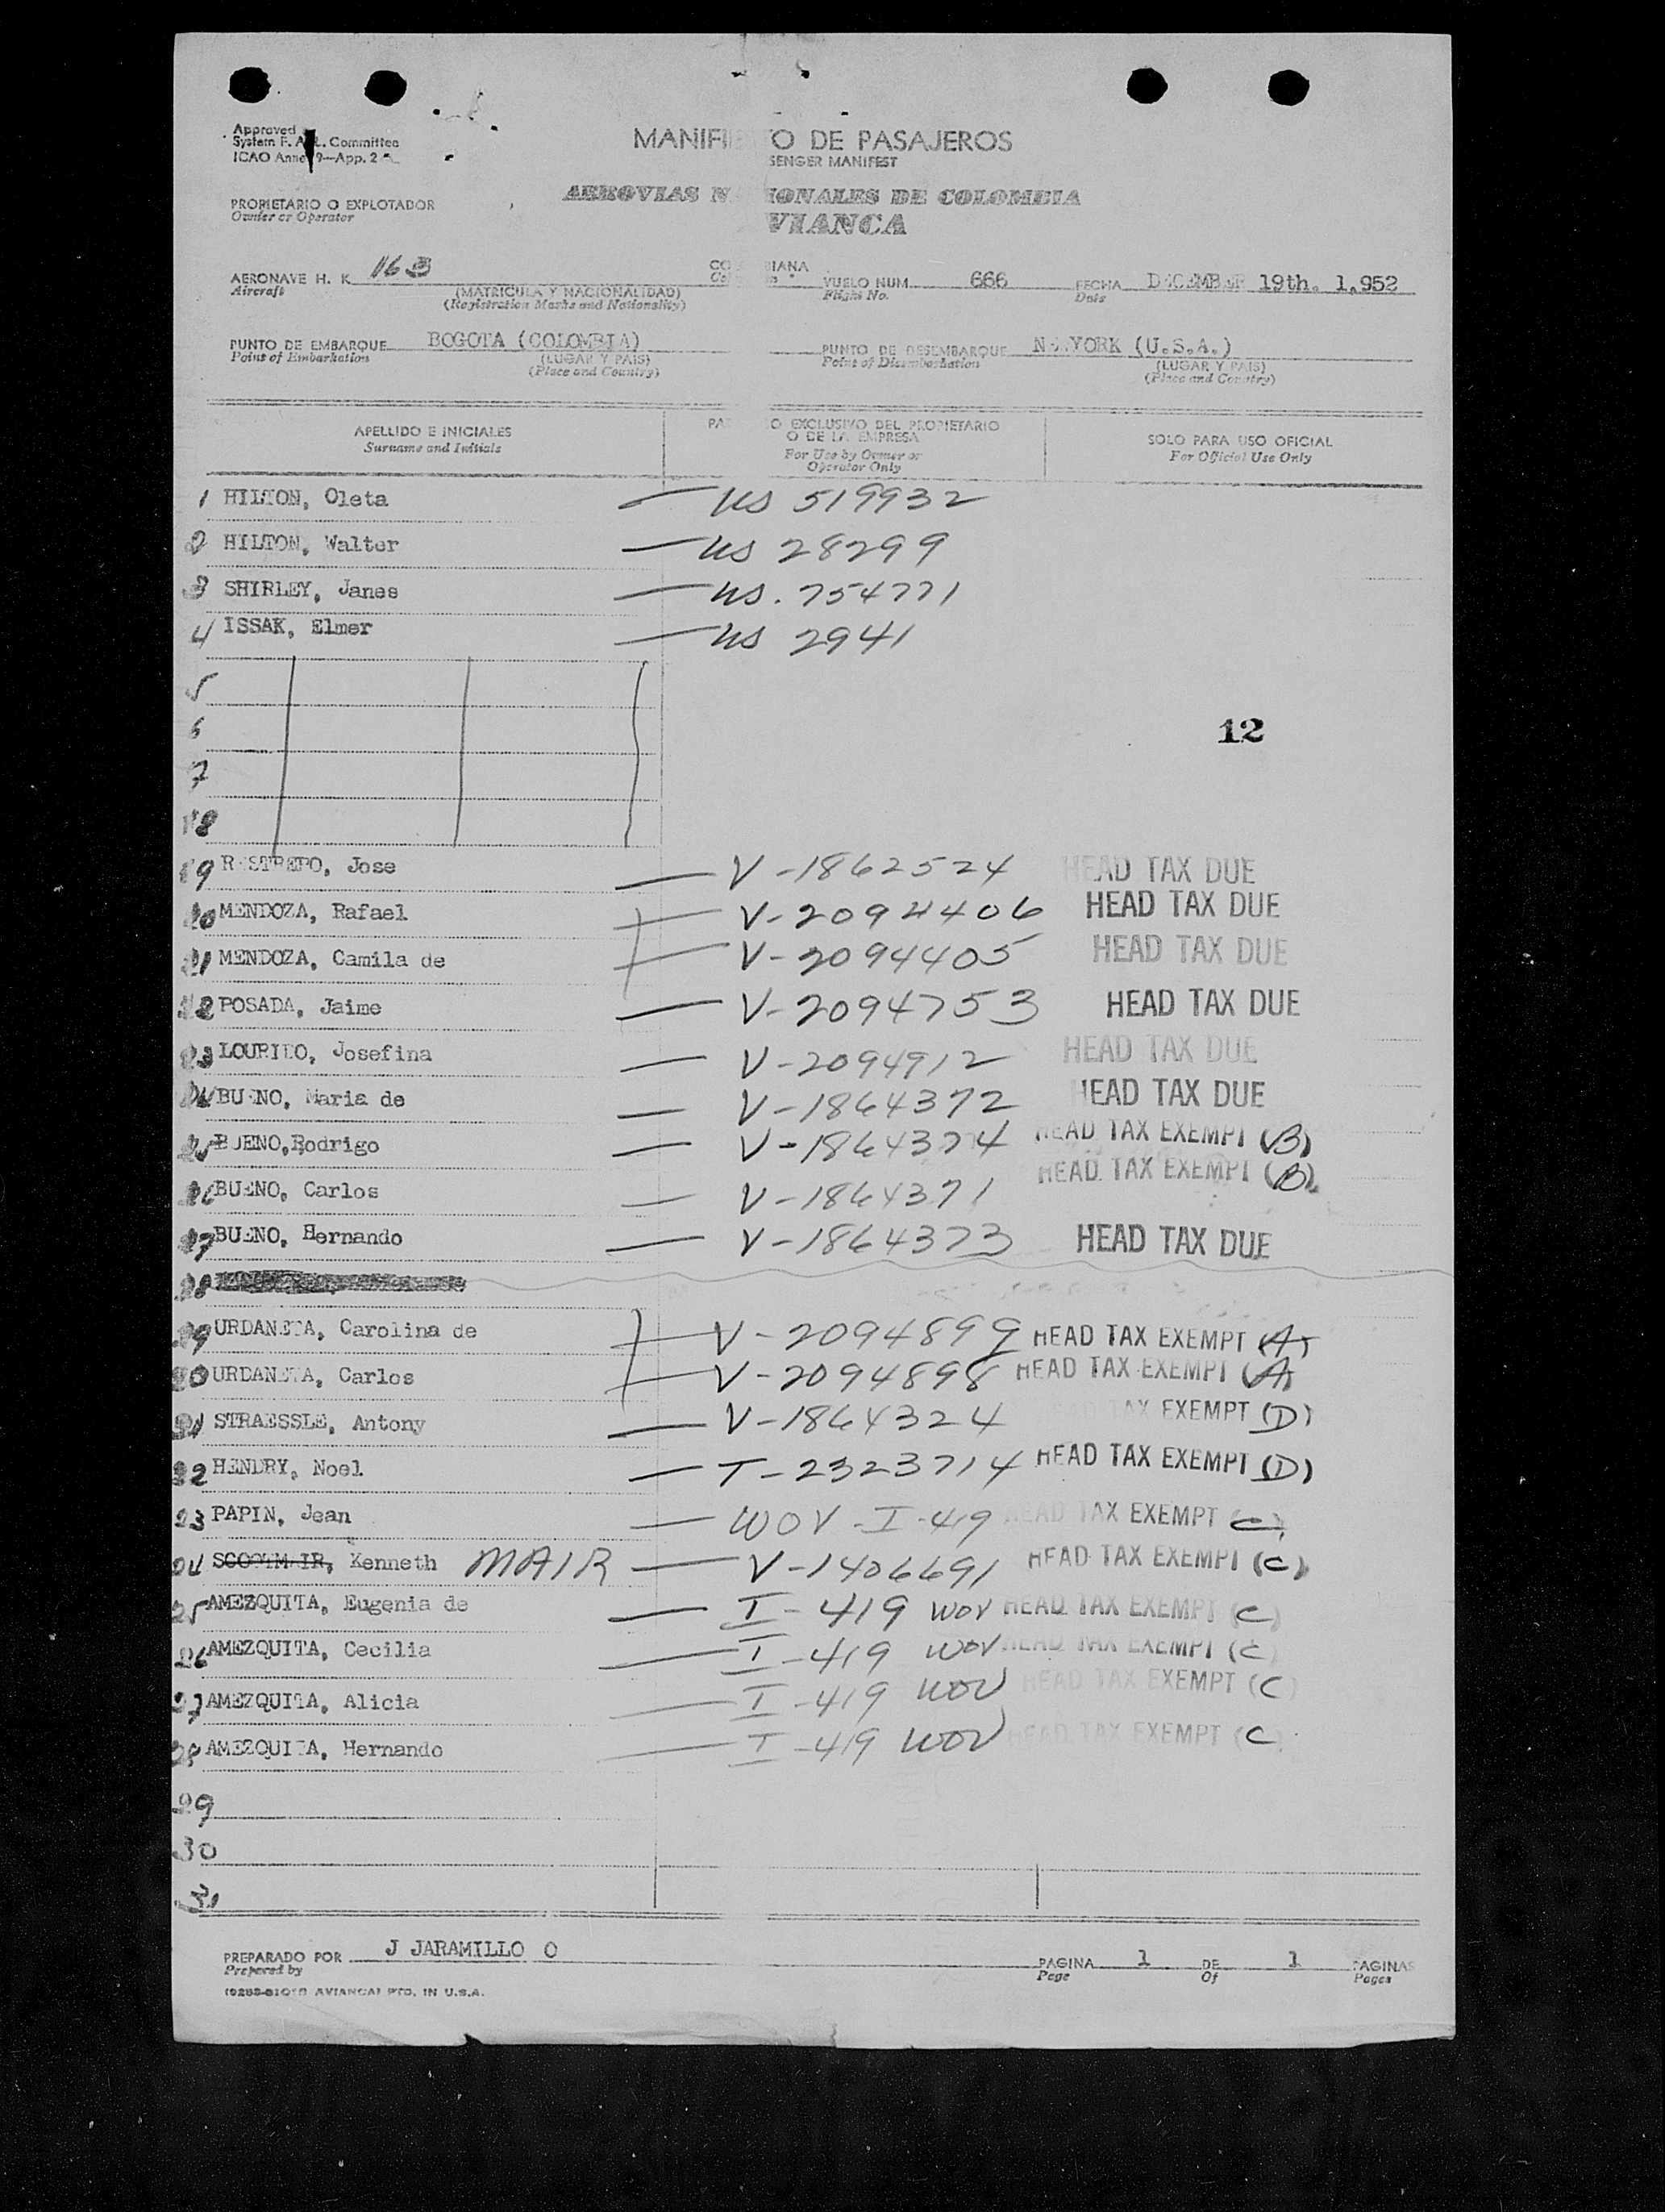 Approved
System F. A. L. Committee
ICAO Annex 9—App. 2
MANIFI O DE PASAJEROS
SENGER MANIFEST
PROPIETARIO O EXPLOTADOR
Owner or Operator
AEROVIAS N IONALES DE COLOMBIA
VIANCA
AERONAVE H. K. 163 CO BIANA VUELO NUM. 666 FECHA DECEMBER 19th. 1.952
Aircraft (MATRICULA Y NACIONALIDAD) Flight No. Date
(Registration Marks and Nationality)
PUNTO DE EMBARQUE BOGOTA (COLOMBIA) PUNTO DE DESEMBARQUE N YORK (U.S.A.)
Point of Embarkation (LUGAR Y PAIS) Point of Disembarkation (LUGAR Y PAIS)
(Place and Country) (Place and Country)
APELLIDO E INICIALES PA O EXCLUSIVO DEL PROPIETARIO SOLO PARA USO OFICIAL
Surname and Initials O DE LA EMPRESA For Official Use Only
For Use by Owner or
Operator Only
1 HILTON, Oleta — US 519932
2 HILTON, Walter — US 28299
3 SHIRLEY, Janes — US. 754771
4 ISSAK, Elmer — US 2941
5
6
12
7
8
9 R STREPO, Jose — V-1862524 HEAD TAX DUE
10 MENDOZA, Rafael — V-2094406 HEAD TAX DUE
11 MENDOZA, Camila de — V-2094405 HEAD TAX DUE
12 POSADA, Jaime — V-2094753 HEAD TAX DUE
13 LOURIDO, Josefina — V-2094912 HEAD TAX DUE
14 BUENO, Maria de — V-1864372 HEAD TAX DUE
15 BUENO, Rodrigo — V-1864374 HEAD TAX EXEMPT (B)
16 BUENO, Carlos — V-1864371 HEAD TAX EXEMPT (B)
17 BUENO, Hernando — V-1864373 HEAD TAX DUE
18
19 URDANETA, Carolina de — V-2094899 HEAD TAX EXEMPT (A)
20 URDANETA, Carlos — V-2094898 HEAD TAX EXEMPT (A)
21 STRAESSLE, Antony — V-1864324 TAX EXEMPT (D)
22 HENDRY, Noel — T-2323714 HEAD TAX EXEMPT (D)
23 PAPIN, Jean — WOV-I-419 HEAD TAX EXEMPT C)
24 SCOOTMAIR, Kenneth MAIR — V-1406691 HEAD TAX EXEMPT (C)
25 AMEZQUITA, Eugenia de — I-419 WOV HEAD TAX EXEMPT (C)
26 AMEZQUITA, Cecilia — I-419 WOV HEAD TAX EXEMPT (C)
27 AMEZQUITA, Alicia — I-419 WOV HEAD TAX EXEMPT (C)
28 AMEZQUITA, Hernando — I-419 WOV HEAD TAX EXEMPT (C
29
30
31
PREPARADO POR J JARAMILLO O PAGINA 1 DE 1 PAGINAS
Prepared by Page Of Pages
AVIANCA) PTD. IN U.S.A.